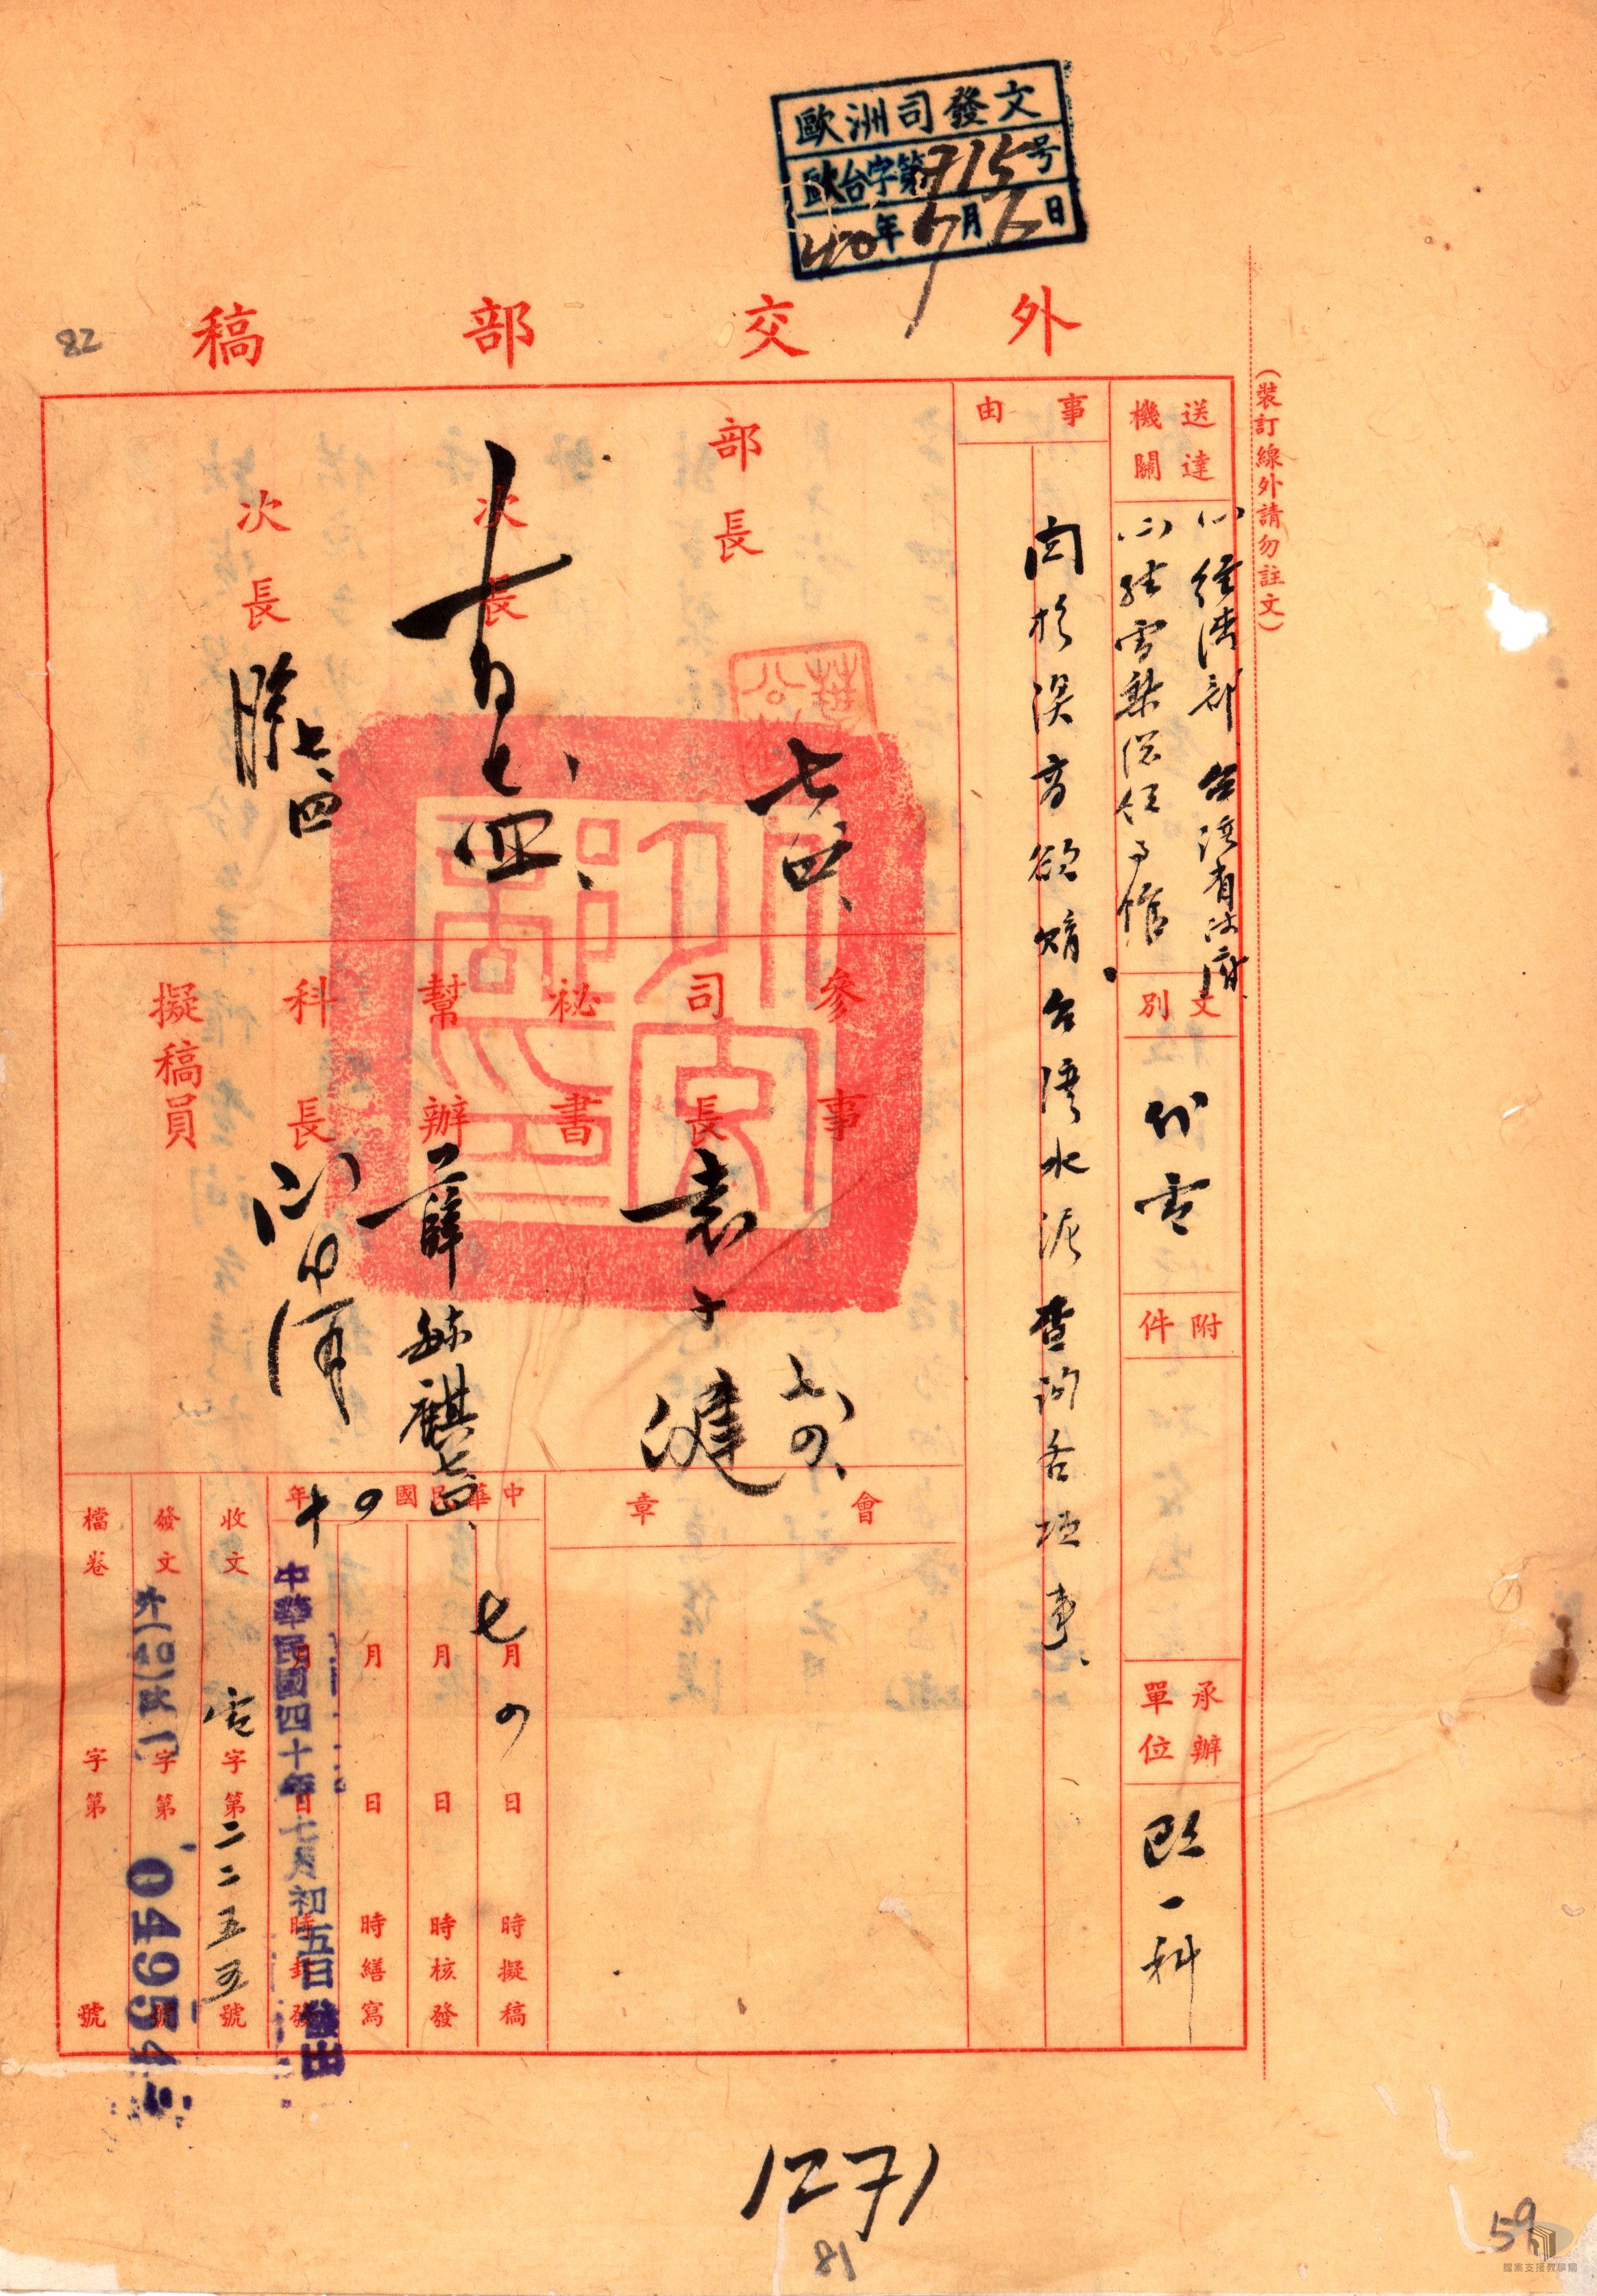 歐洲司發文
歐台字第715号
40年7月6日
外交部稿
82
(裝訂線外請勿註文)
送達機關
經濟部 台灣省政府
雪梨總領事館
文別
代電
附件
承辦單位
歐一科
事由
関於澳商欲購台灣水泥查詢各項事、
部長
七四、
次長
七、四、
次長
七、四
參事
司長
袁子健
七、四、
祕書
幫辦
薛毓麒
科長
擬稿員
會章
中華民國四十年
七月四日 時擬稿
月 日 時核發
月 日 時繕寫
月 日 時封發
中華民國四十年七月初五日發出
收文 電字第二二五五號
發文 外(40)歐一字第04954號
檔卷 字第 號
1271
81
59
檔案支援教學網